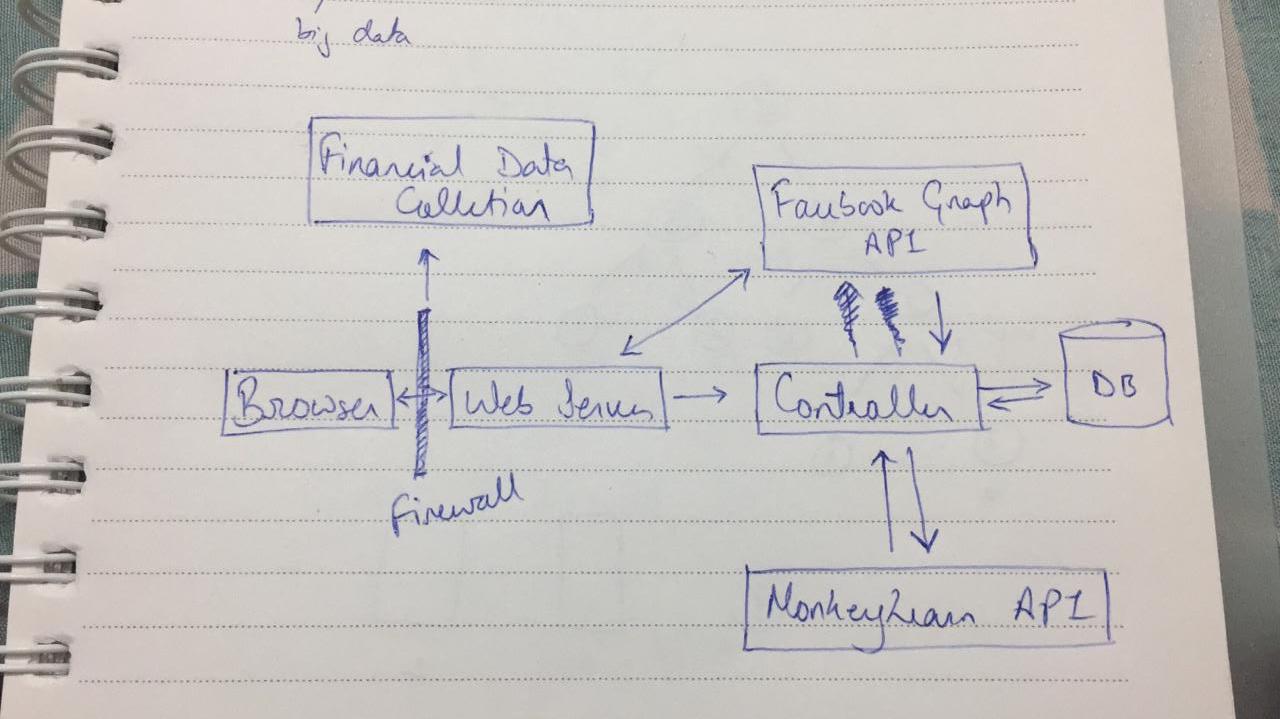 big data
Financial Data
Collection
Facebook Graph
API
Browser
Web Server
Controller
DB
firewall
MonkeyLearn API